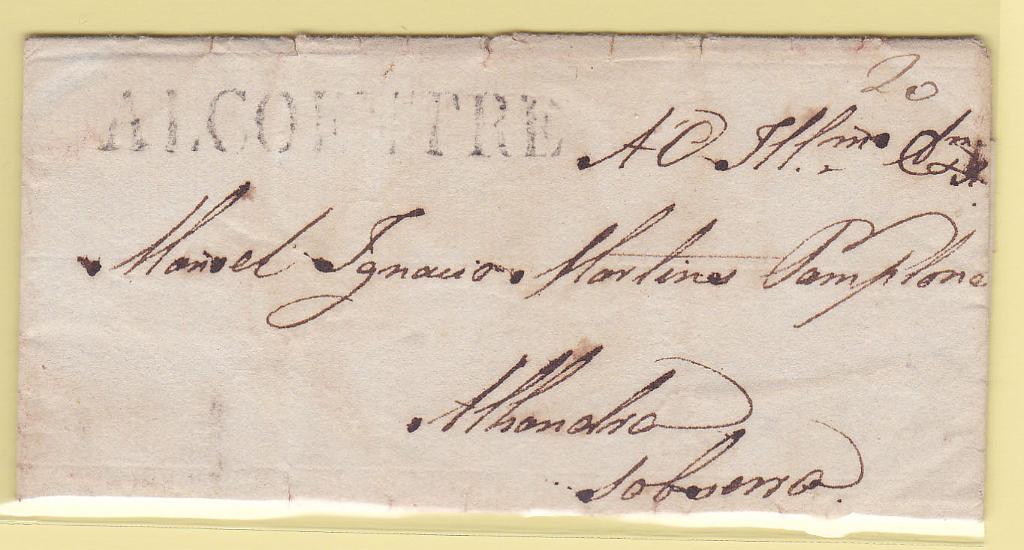 20
ALCOENTRE
AO Ill.mo
Manoel Ignacio Martins Pamplona
Alhandra